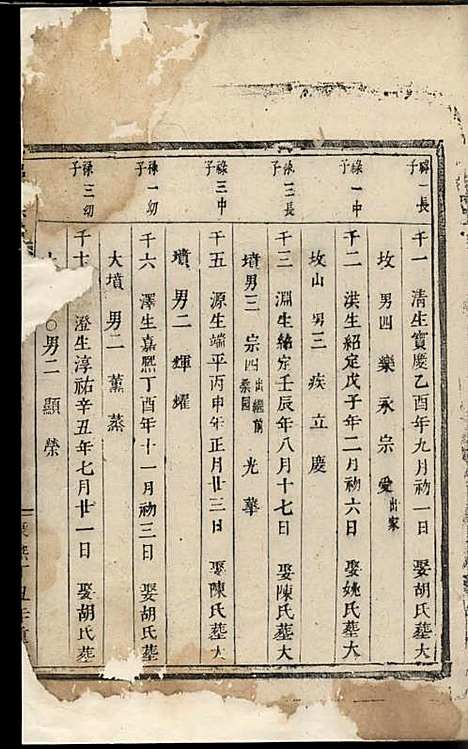 祿一長子
千一 清生寶慶乙酉年九月初一日 娶胡氏墓大
坟 男四 樂 永 宗 愛出家
祿一中子
千二 洪生紹定戊子年二月初六日 娶姚氏墓大
坟山 男三 疾 立 慶
祿三長子
千三 淵生紹定壬辰年八月十七日 娶陳氏墓大
墳男三 宗四出繼前桑園 光 華
祿三中子
千五 源生端平丙申年正月廿三日 娶陳氏墓大
墳 男二 輝 燿
祿一幼子
千六 澤生嘉熙丁酉年十一月初三日 娶胡氏墓
大墳 男二 薰 蒸
祿三幼子
千七 澄生淳祐辛丑年七月廿一日 娶胡氏墓
○男二 顯 榮